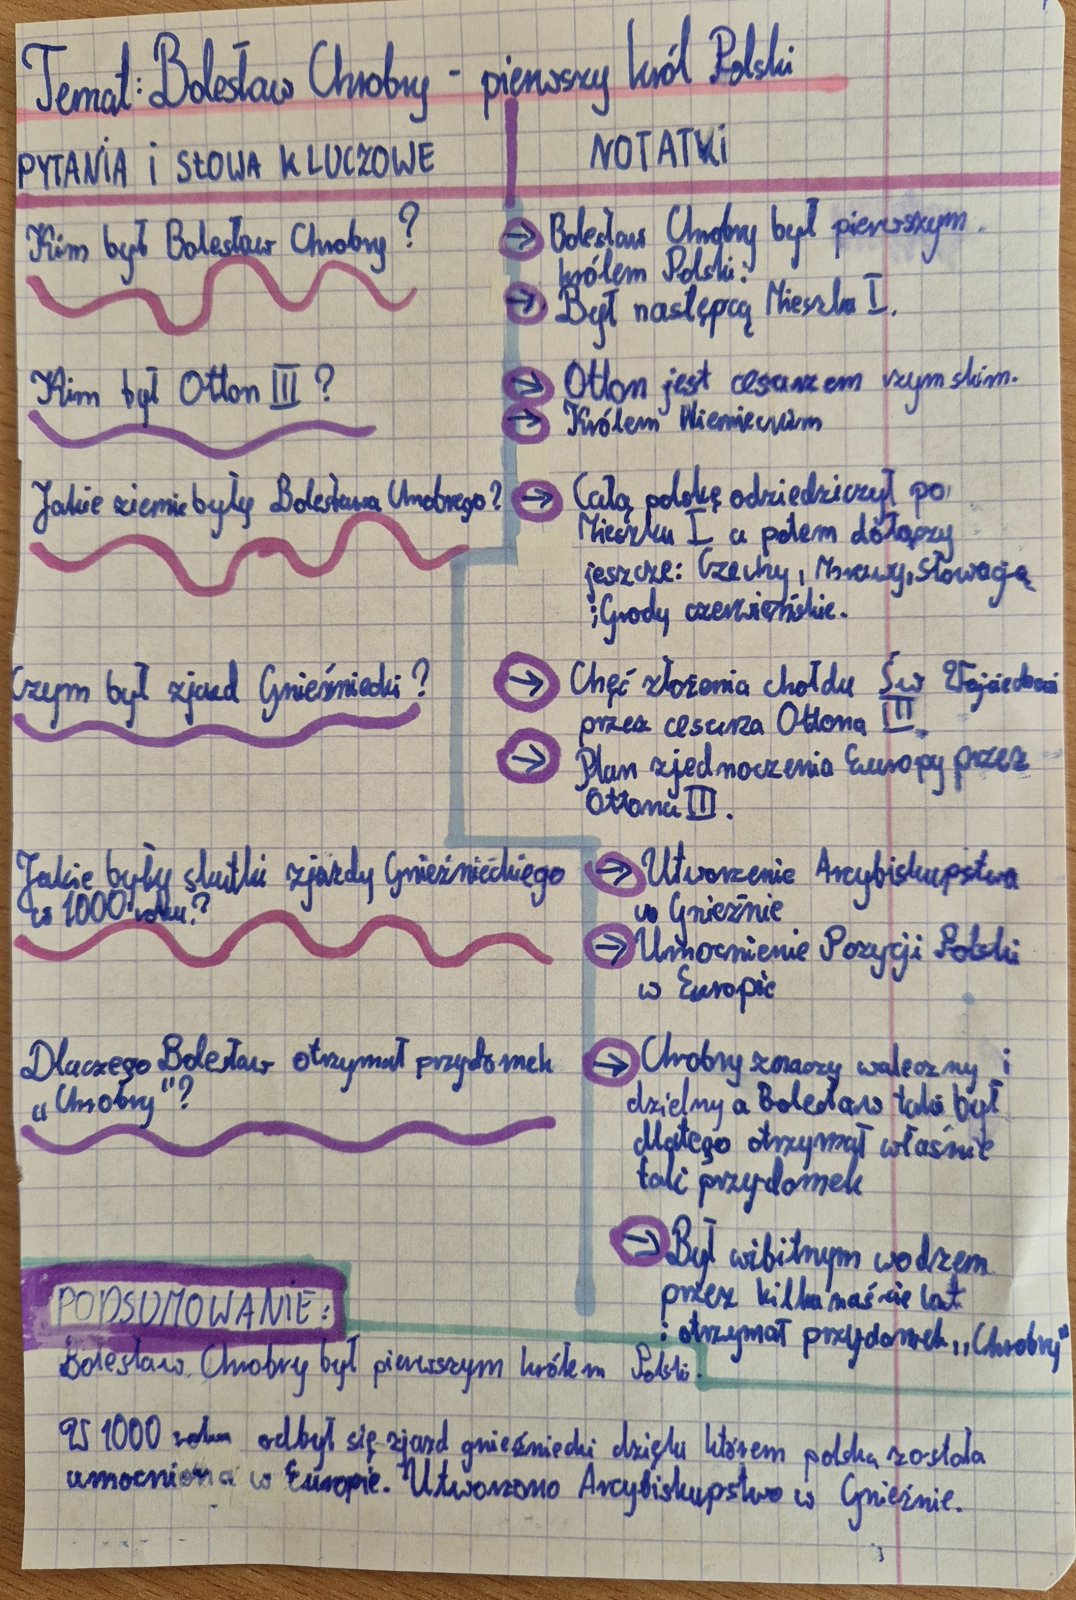 Temat: Bolesław Chrobry - pierwszy król Polski
PYTANIA i SŁOWA KLUCZOWE
NOTATKI
Kim był Bolesław Chrobry?
→ Bolesław Chrobry był pierwszym
królem Polski.
→ Był następcą Mieszka I.
Kim był Otton III?
→ Otton jest cesarzem rzymskim.
→ Królem Niemieckim
Jakie ziemie były Bolesława Chrobrego?
→ Całą polskę odziedziczył po
Mieszku I a potem dołączy
jeszcze: Czechy, Morawy, Słowację
i Grody czerwieńskie.
Czym był zjazd Gnieźniecki?
→ Chęć złożenia chołdu Św Wojciechowi
przez cesarza Ottona III.
→ Plan zjednoczenia Europy przez
Ottona III.
Jakie były skutki zjazdy Gnieźnieckiego
w 1000 roku?
→ Utworzenie Arcybiskupstwa
w Gnieźnie
→ Umocnienie Pozycji Polski
w Europie
Dlaczego Bolesław otrzymał przydomek
„Chrobry"?
→ Chrobry znaczy waleczny i
dzielny a Bolesław taki był
dlatego otrzymał właśnie
taki przydomek
→ Był wibitnym wodzem
przez kilkanaście lat
i otrzymał przydomek „Chrobry"
PODSUMOWANIE:
Bolesław Chrobry był pierwszym królem Polski.
W 1000 roku odbył się zjazd gnieźniecki dzięki którem polska została
umocniona w Europie. Utworzono Arcybiskupstwo w Gnieźnie.